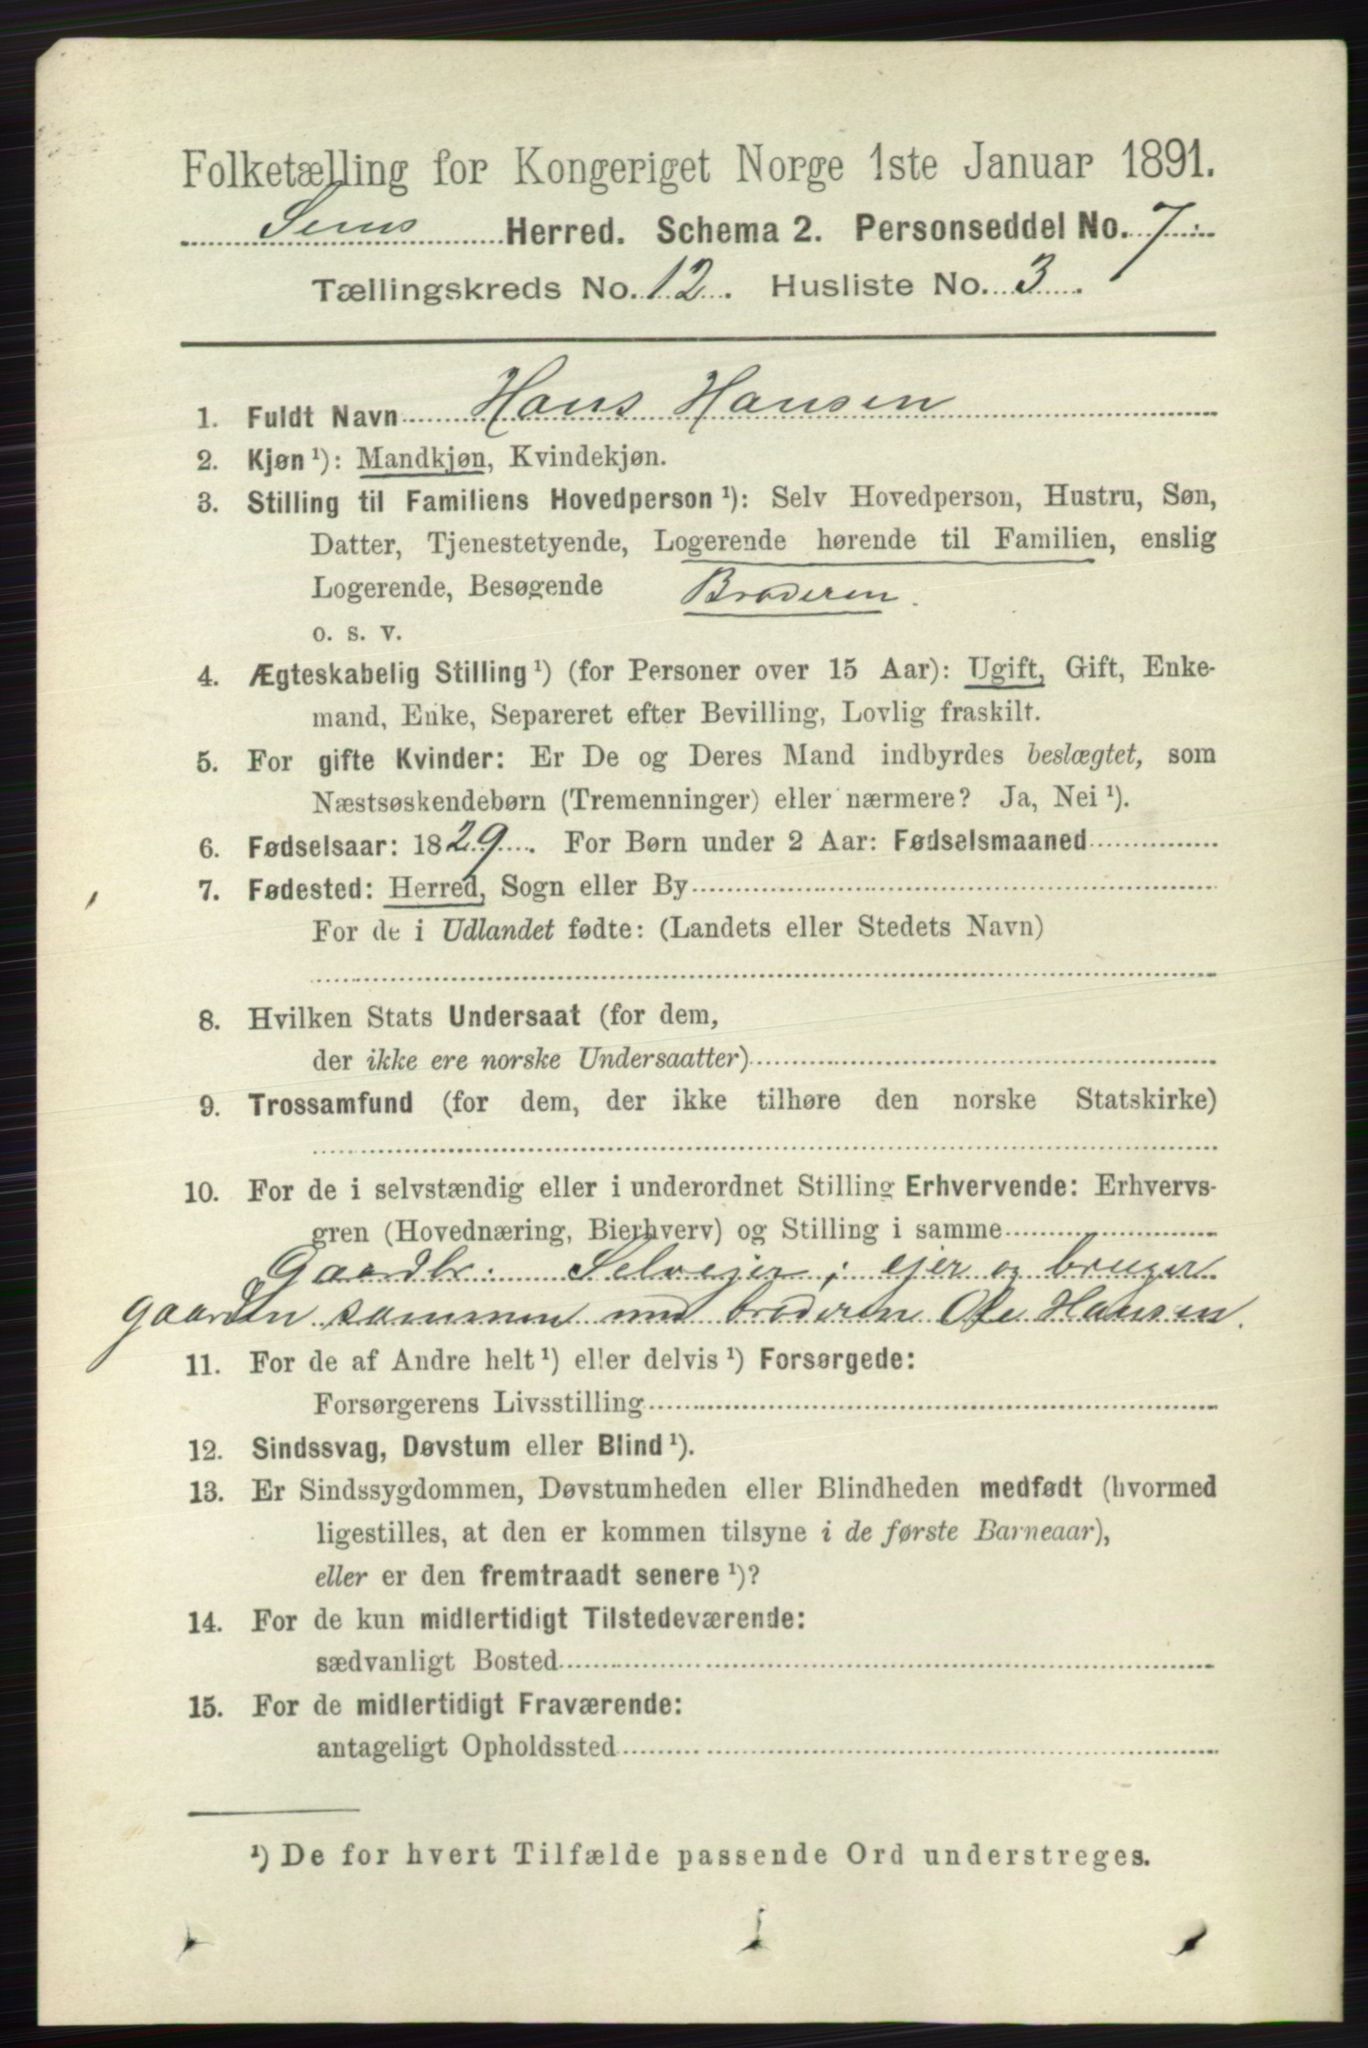 Folketælling for Kongeriget Norge 1ste Januar 1891.
Sems Herred. Schema 2. Personseddel No. 7
Tællingskreds No. 12. Husliste No. 3.
1. Fuldt Navn Hans Hansen
2. Kjøn ¹): Mandkjøn, Kvindekjøn.
3. Stilling til Familiens Hovedperson ¹): Selv Hovedperson, Hustru, Søn,
Datter, Tjenestetyende, Logerende hørende til Familien, enslig
Logerende, Besøgende Broderen.
o. s. v.
4. Ægteskabelig Stilling ¹) (for Personer over 15 Aar): Ugift, Gift, Enke-
mand, Enke, Separeret efter Bevilling, Lovlig fraskilt.
5. For gifte Kvinder: Er De og Deres Mand indbyrdes beslægtet, som
Næstsøskendebørn (Tremenninger) eller nærmere? Ja, Nei ¹).
6. Fødselsaar: 1829. For Børn under 2 Aar: Fødselsmaaned
7. Fødested: Herred, Sogn eller By
For de i Udlandet fødte: (Landets eller Stedets Navn)
8. Hvilken Stats Undersaat (for dem,
der ikke ere norske Undersaatter)
9. Trossamfund (for dem, der ikke tilhøre den norske Statskirke)
10. For de i selvstændig eller i underordnet Stilling Erhvervende: Erhvervs-
gren (Hovednæring, Bierhverv) og Stilling i samme
Gaardbr. Selvejer; ejer og bruger
gaarden sammen med broderen Ole Hansen.
11. For de af Andre helt ¹) eller delvis ¹) Forsørgede:
Forsørgerens Livsstilling
12. Sindssvag, Døvstum eller Blind ¹).
13. Er Sindssygdommen, Døvstumheden eller Blindheden medfødt (hvormed
ligestilles, at den er kommen tilsyne i de første Barneaar),
eller er den fremtraadt senere ¹)?
14. For de kun midlertidigt Tilstedeværende:
sædvanligt Bosted
15. For de midlertidigt Fraværende:
antageligt Opholdssted
¹) De for hvert Tilfælde passende Ord understreges.